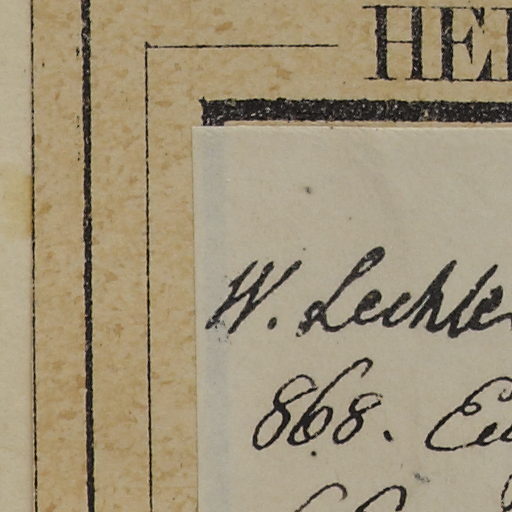 HE
W. Lechle
868. Eu